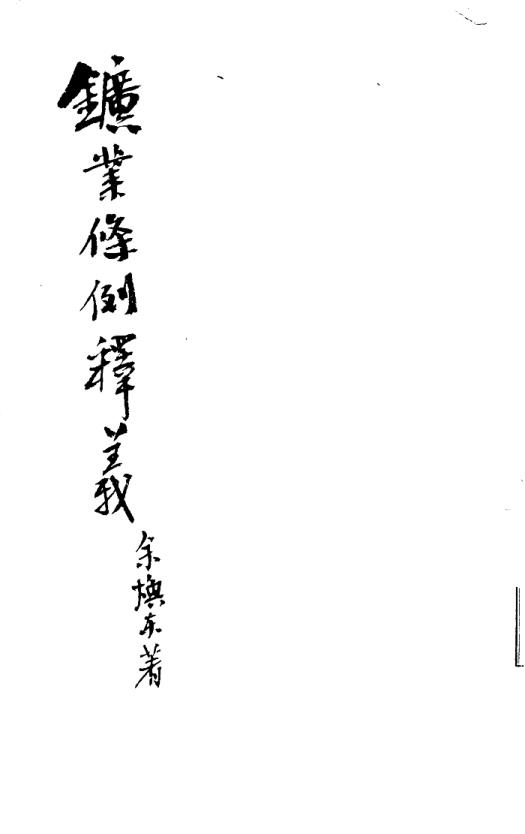 鑛業條例釋義
余煥东著